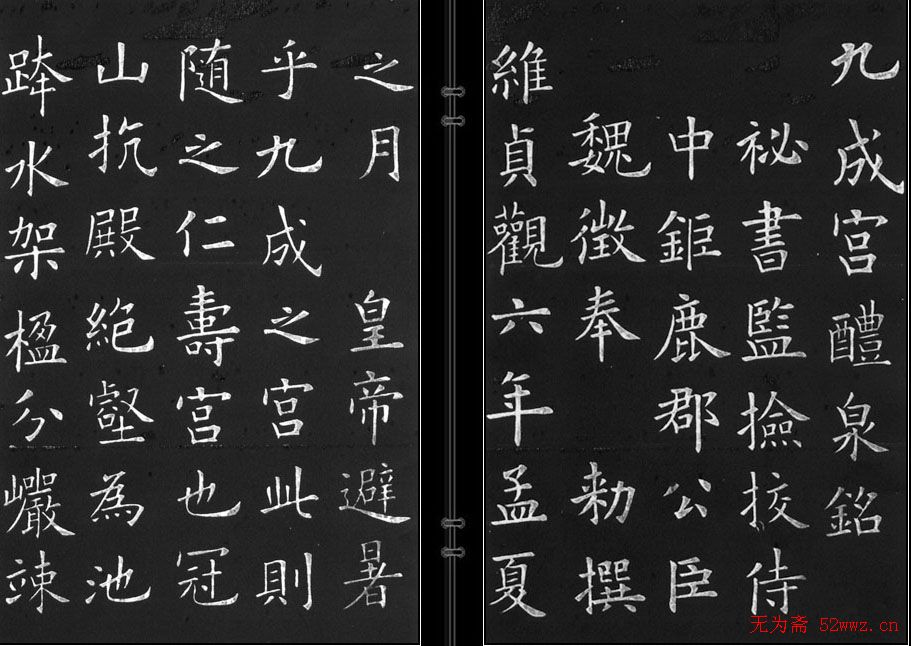 九成宫醴泉銘
祕書監撿挍侍
中鉅鹿郡公臣
魏徵奉 勑撰
維貞觀六年孟夏
之月 皇帝避暑
乎九成之宫此則
随之仁壽宫也冠
山抗殿絶壑為池
跨水架楹分巖竦
无为斋 52wwz.cn